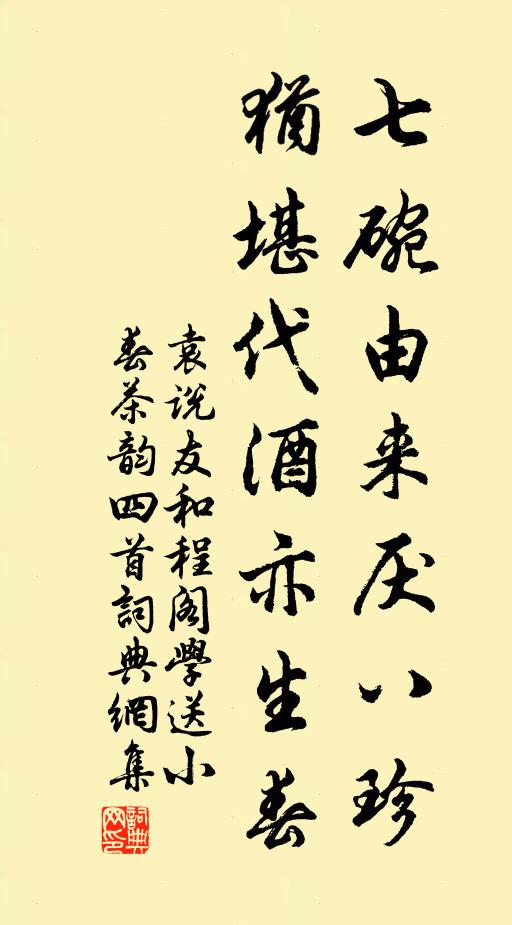 七碗由来厌八珍
猶堪代酒亦生春
袁说友和程阁學送小
春茶韵四首詞典網集
詞典
网印